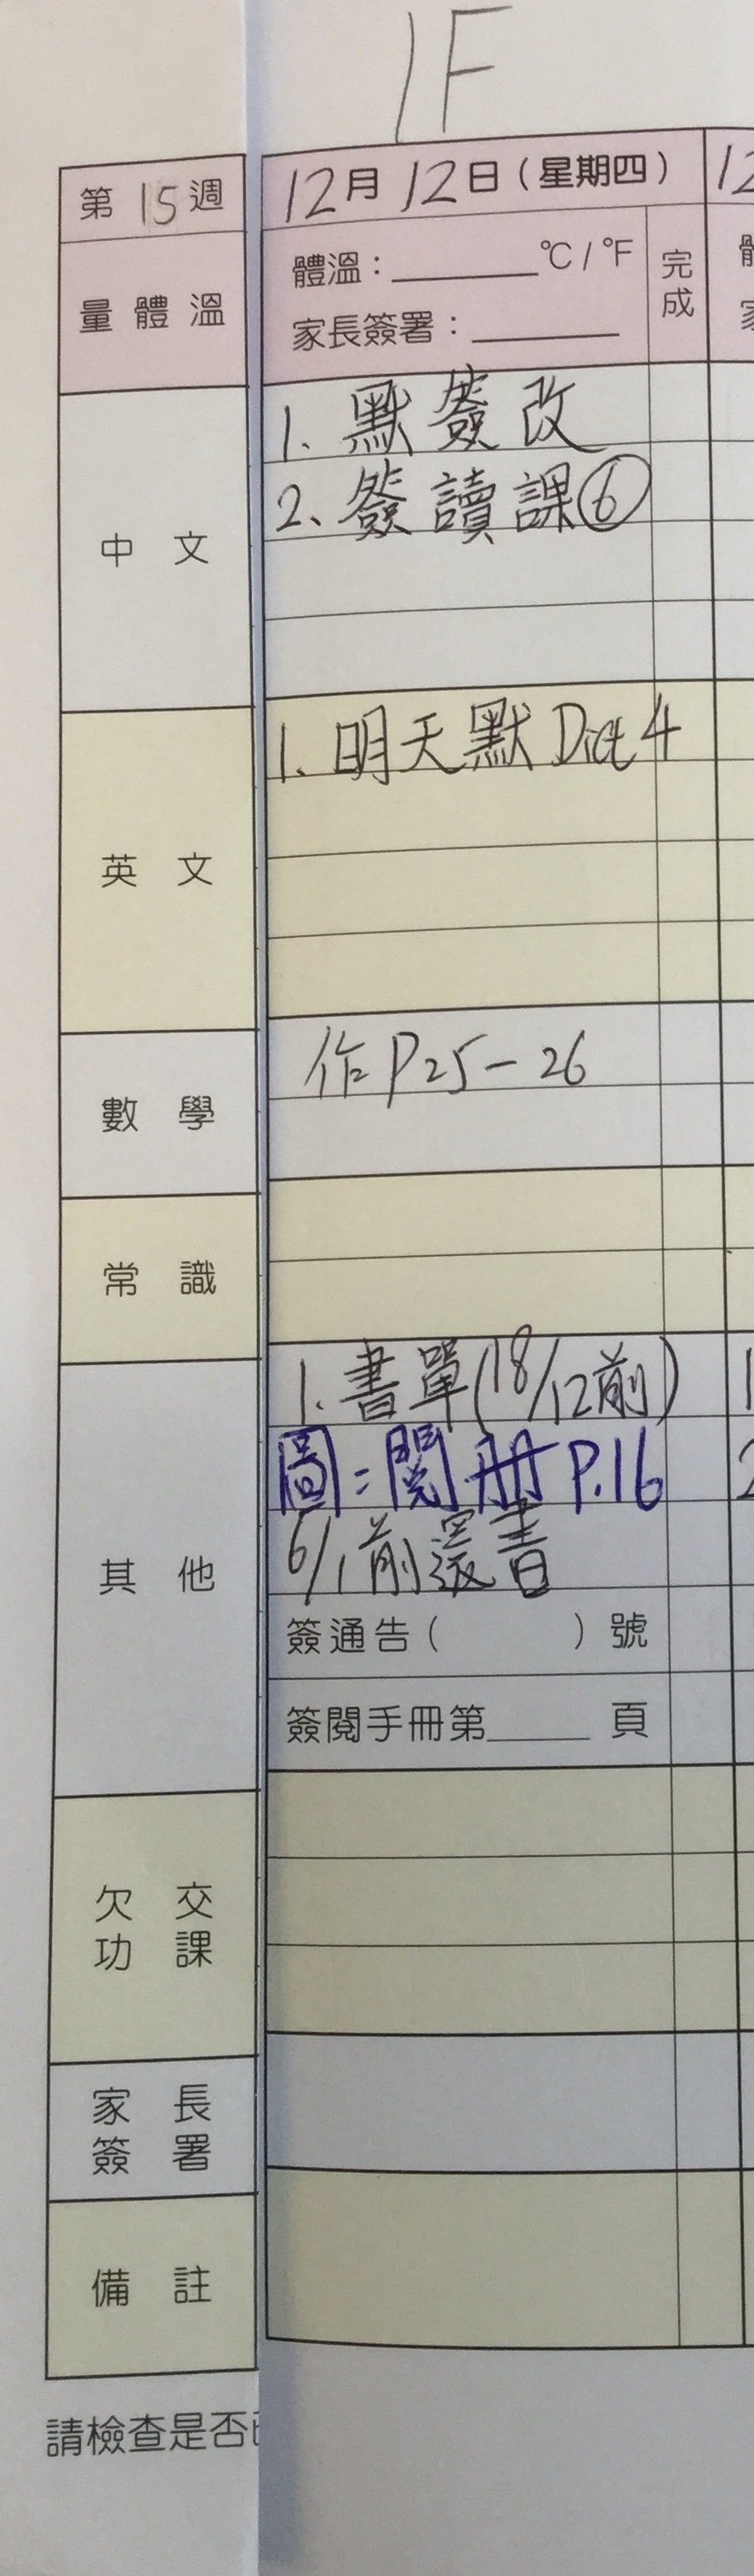 1F
第 15 週
12月12日（星期四）
12
量體溫
體溫：______℃/℉
完成
家長簽署：______
中文
1. 默簽改
2. 簽讀課⑥
英文
1. 明天默 Dict 4
數學
作P25－26
常識
其他
1. 書單(18/12前)
圖：閱冊 P.16
6/1前還書
簽通告（ ）號
簽閱手冊第______頁
欠交功課
家長簽署
備註
請檢查是否